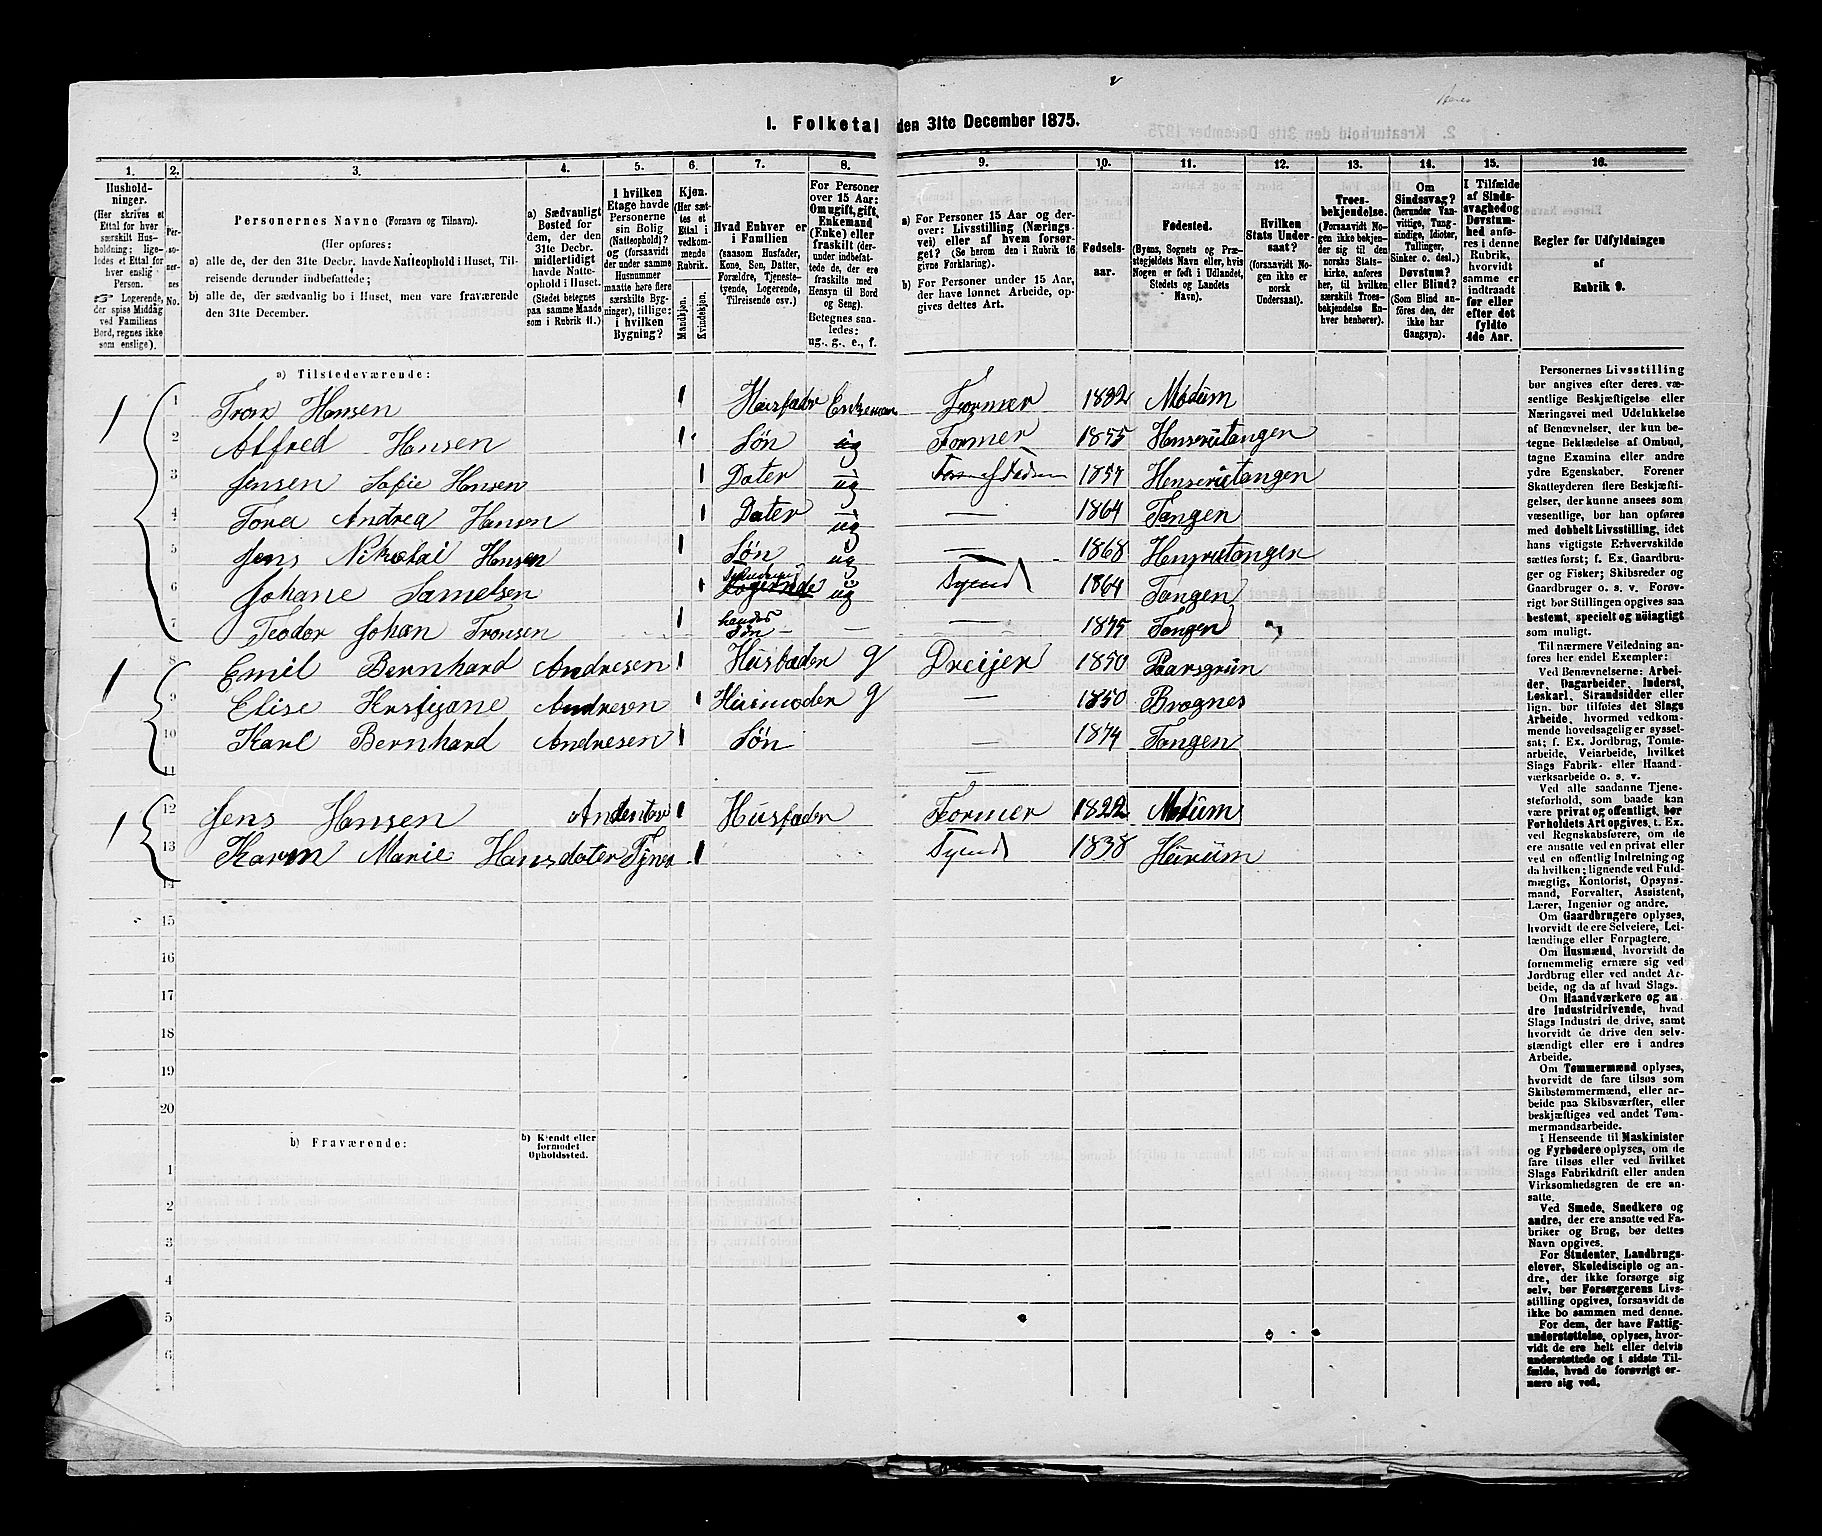 1. Folketal den 31te December 1875.
1. 2. 3. 4. 5. 6. 7. 8. 9. 10. 11. 12. 13. 14. 15. 16.
Hushold-
ninger.
(Her skrives et
Ettal for hver
særskilt Hus-
holdning; lige-
ledes et Ettal for
hver enslig
Person.
☞ Logerende,
der spise Middag
ved Familiens
Bord, regnes ikke
som enslige).
Per-
so-
ner-
nes
No.
Personernes Navne (Fornavn og Tilnavn).
(Her opføres:
a) alle de, der den 31te Decbr. havde Natteophold i Huset, Til-
reisende derunder indbefattede;
b) alle de, der sædvanlig bo i Huset, men vare fraværende
den 31te December.
a) Sædvanligt
Bosted for
dem, der den
31te Decbr.
midlertidigt
havde Natte-
ophold i Huset.
(Stedet betegnes
paa samme Maade
som i Rubrik 11.)
I hvilken
Etage havde
Personerne
sin Bolig
(Natteophold)?
og (forsaavidt
der under samme
Husnummer
maatte høre flere
særskilte Byg-
ninger), tillige:
i hvilken
Bygning?
Kjøn.
(Her sæt-
tes et
Ettal i
vedkom-
mende
Rubrik.
Mandkjøn.
Kvindekjøn.
Hvad Enhver er
i Familien
(saasom Husfader,
Kone, Søn, Datter,
Forældre, Tjeneste-
tyende, Logerende,
Tilreisende osv.)
For Personer
over 15 Aar:
Om ugift, gift,
Enkemand
(Enke) eller
fraskilt (der-
under indbefat-
tede de, der ere
fraskilte med
Hensyn til Bord
og Seng).
Betegnes saa-
ledes:
ug., g., e., f.
a) For Personer 15 Aar og der-
over: Livsstilling (Nærings-
vei) eller af hvem forsør-
get? (Se herom den i Rubrik 16
givne Forklaring).
b) For Personer under 15 Aar,
der have lønnet Arbeide, op-
gives dettes Art.
Fødsels-
aar.
Fødested.
(Byens, Sognets og Præ-
stegjeldets Navn eller, hvis
Nogen er født i Udlandet,
Stedets og Landets
Navn).
Hvilken
Stats Under-
saat?
(forsaavidt No-
gen ikke er
norsk
Undersaat).
Troes-
bekjendelse.
(Forsaavidt No-
gen ikke bekjen-
der sig til den
norske Stats-
kirke, anføres
her, til hvilken
særskilt Troes-
bekjendelse En-
hver benhører).
Om
Sindssvag?
(herunder Van-
vittige, Tung-
sindige, Idioter,
Tullinger,
Sinker o. desl.)
Døvstum?
eller Blind?
(Som Blind an-
føres den, der
ikke har
Gangsyn).
I Tilfælde
af Sinds-
svaghed og
Døvstum-
hed anfø-
res i denne
Rubrik,
hvorvidt
samme er
indtraadt
før eller
efter det
fyldte
4de Aar.
Regler for Udfyldningen
af
Rubrik 9.
a) Tilstedeværende:
1 1 Tron Hansen 1 Husfader Enkeman Former 1832 Modum
2 Alfred Hansen 1 Søn ug Former 1855 Hensrutangen
3 Jensen Sofie Hansen 1 Dater ug 1857 Hensrutangen
4 Tora Andrea Hansen 1 Dater ug — 1864 Tangen
5 Jens Nikolai Hansen 1 Søn ug — 1868 Hensrutangen
6 Johane Samelsen 1 Logerende ug Tyend 1864 Tangen
7 Teodor Johan Tronsen 1 hendes Søn — — — 1875 Tangen
1 8 Emil Bernhard Andresen 1 Husfader g Dreijer 1850 Paarsgrun
9 Elise Krstijane Andresen 1 Husmoder g — 1850 Bragnes
10 Karl Bernhard Andresen 1 Søn — 1874 Tangen
11 —
1 12 Jens Hansen 1 Husfader Former 1822 Modum
13 Karen Marie Hansdater 1 Tyend 1838 Heirum
14
15
16
17
18
19
20
b) Fraværende:
b) Kjendt eller
formodet
Opholdssted.
1
2
3
4
5
6
Personernes Livsstilling
bør angives efter deres væ-
sentlige Beskjæftigelse eller
Næringsvei med Udelukkelse
af Benævnelser, der kun be-
tegne Beklædelse af Ombud,
tagne Examina eller andre
ydre Egenskaber. Forener
Skatteyderen flere Beskjæfti-
gelser, der kunne ansees som
væsentlige, bør han opføres
med dobbelt Livsstilling, idet
hans vigtigste Erhvervskilde
sættes først; f. Ex. Gaardbru-
ger og Fisker; Skibsreder og
Gaardbruger o. s. v. Forøv-
rigt bør Stillingen opgives saa
bestemt, specielt og nøiagtigt
som muligt.
Til nærmere Veiledning an-
føres her endel Exempler:
Ved Benævnelserne: Arbei-
der, Dagarbeider, Inderst,
Løskarl, Strandsidder eller
lign. bør tilføies det Slags
Arbeide, hvormed vedkom-
mende hovedsagelig er syssel-
sat; f. Ex. Jordbrug, Tomte-
arbeide, Veiarbeide, hvilket
Slags Fabrik- eller Haand-
værksarbeide o. s. v.
Ved alle saadanne Tjene-
steforhold, som baade kan
være privat og offentligt, bør
Forholdets Art opgives, t. Ex.
ved Regnskabsførere, om de
ere ansatte ved en privat eller
ved en offentlig Indretning og
da hvilken; lignende ved Fuld-
mægtig, Kontorist, Opsyns-
mand, Forvalter, Assistent,
Lærer, Ingeniør og andre.
Om Gaardbrugere oplyses,
hvorvidt de ere Selveiere, Lei-
lændinge eller Forpagtere.
Om Husmænd, hvorvidt de
fornemmelig ernære sig ved
Jordbrug eller ved andet Ar-
beide, og da af hvad Slags.
Om Haandværkere og an-
dre Industridrivende, hvad
Slags Industri de drive, samt
hvorvidt de drive den selv-
stændigt eller ere i andres
Arbeide.
Om Tømmermænd oplyses,
hvorvidt de fare tilsøs som
Skibstømmermænd, eller ar-
beide paa Skibsværfter, eller
beskjæftiges ved andet Tøm-
mermandsarbeide.
I Henseende til Maskinister
og Fyrbødere oplyses, om de
fare tilsøs eller ved hvilket
Slags Fabrikdrift eller anden
Virksomhedsgren de ere an-
satte.
Ved Smede, Snedkere og
andre, der ere ansatte ved Fa-
briker og Brug, bør dettes
Navn opgives.
For Studenter, Landbrugs-
elever, Skoledisciple og an-
dre, der ikke forsørge sig
selv, bør Forsørgerens Livs-
stilling opgives, forsaavidt de
ikke bo sammen med denne.
For dem, der have Fattig-
understøttelse, oplyses, hvor-
vidt de ere helt eller delvis
understøttede og i sidste Til-
fælde, hvad de forøvrigt er-
nære sig ved.